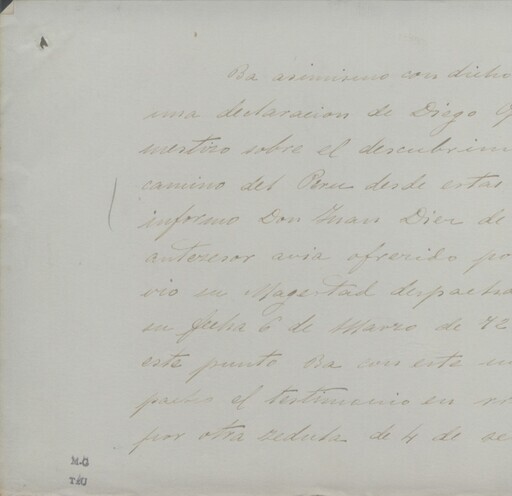 Ba asimismo con dicho
una declaracion de Diego
mestizo sobre el descubrim
camino del Peru desde estas
informo Don Juan Diez de
antezesor avia ofrezido po
vio su Magestad despacha
su fecha 6 de Marzo de 72
este punto Ba con este
pacho el testimonio en
por otra zedula de 4 de